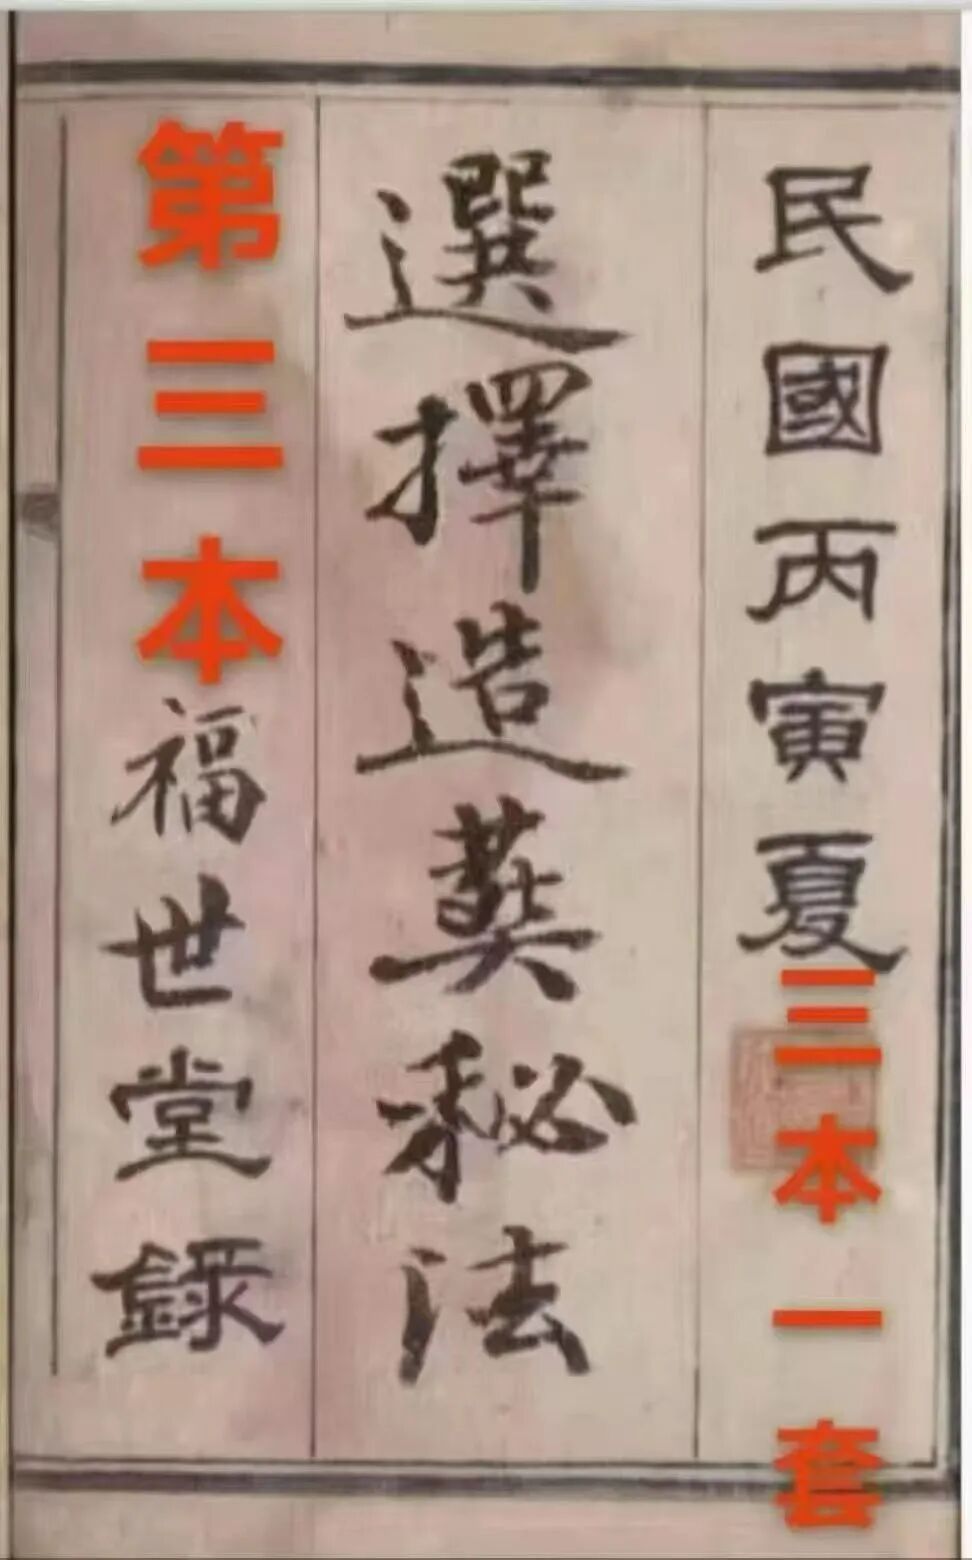 民國丙寅夏
三本一套
選擇造葬秘法
第三本
福世堂錄